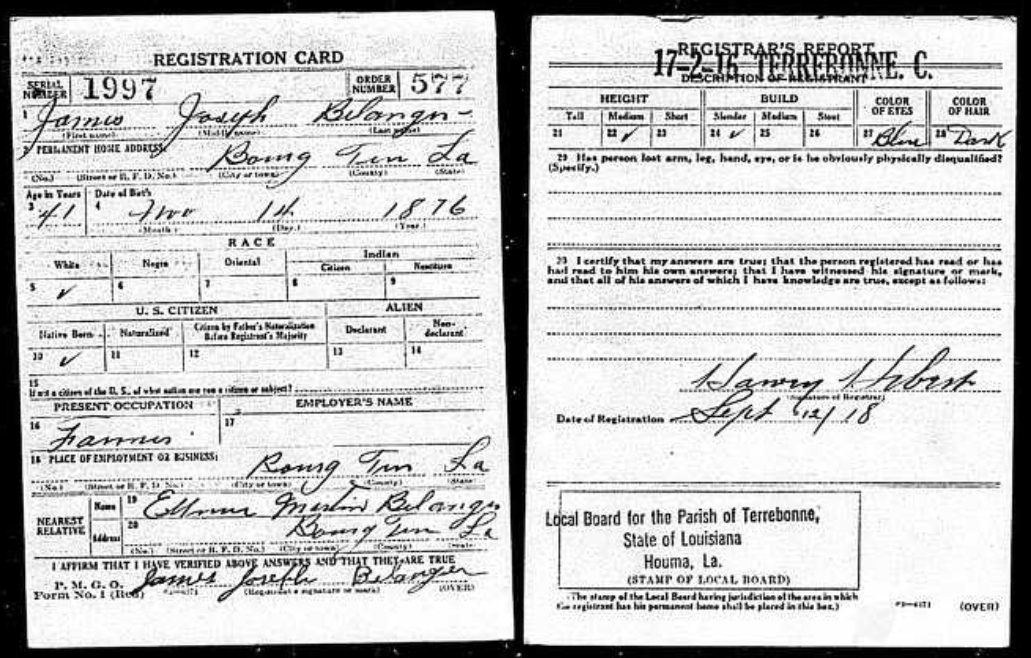 REGISTRATION CARD
SERIAL NUMBER 1997 ORDER NUMBER 577
1 James Joseph Belanger
(First name) (Middle name) (Last name)
2 PERMANENT HOME ADDRESS:
Bourg Terr La
(No.) (Street or R. F. D. No.) (City or town) (County) (State)
Age in Years Date of Birth
3 41 4 Nov 14 1876
(Month) (Day) (Year)
RACE
White Negro Oriental Indian
Citizen Noncitizen
5 ✓ 6 7 8 9
U. S. CITIZEN ALIEN
Native Born Naturalized Citizen by Father's Naturalization Before Registrant's Majority Declarant Non-declarant
10 ✓ 11 12 13 14
15
If not a citizen of the U. S., of what nation are you a citizen or subject?
PRESENT OCCUPATION EMPLOYER'S NAME
16 Farmer 17
18 PLACE OF EMPLOYMENT OR BUSINESS:
Bourg Terr La
(No.) (Street or R. F. D. No.) (City or town) (County) (State)
NEAREST RELATIVE
Name 19 Belanger
Address 20 Bourg Terr La
(No.) (Street or R. F. D. No.) (City or town) (County) (State)
I AFFIRM THAT I HAVE VERIFIED ABOVE ANSWERS AND THAT THEY ARE TRUE
P. M. G. O.
Form No. 1 (Red) James Joseph Belanger
(Registrant's signature or mark) (OVER)
REGISTRAR'S REPORT
17-2-16 TERREBONNE. C.
DESCRIPTION OF REGISTRANT
HEIGHT BUILD COLOR OF EYES COLOR OF HAIR
Tall Medium Short Slender Medium Stout
21 22 ✓ 23 24 ✓ 25 26 27 Blue 28 Dark
29 Has person lost arm, leg, hand, eye, or is he obviously physically disqualified?
(Specify.)
30 I certify that my answers are true; that the person registered has read or has
had read to him his own answers; that I have witnessed his signature or mark,
and that all of his answers of which I have knowledge are true, except as follows:
(Signature of Registrar)
Date of Registration Sept 12/18
Local Board for the Parish of Terrebonne,
State of Louisiana
Houma, La.
(STAMP OF LOCAL BOARD)
(The stamp of the Local Board having jurisdiction of the area in which
the registrant has his permanent home shall be placed in this box.)
(OVER)